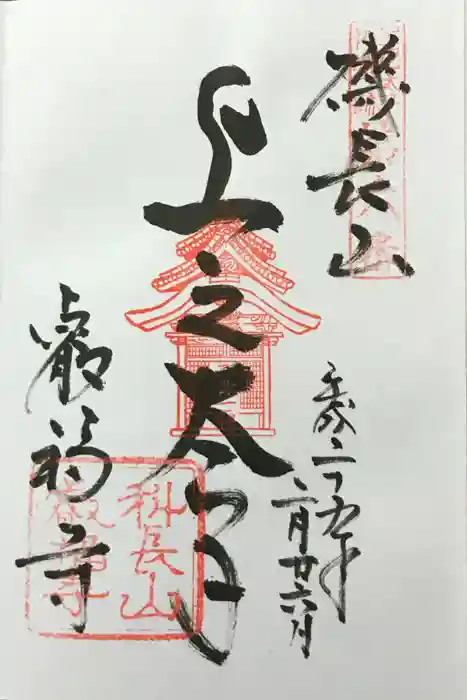 磯長山
上之太子
叡福寺
平成二十九年
二月廿六日
科長山
叡福寺